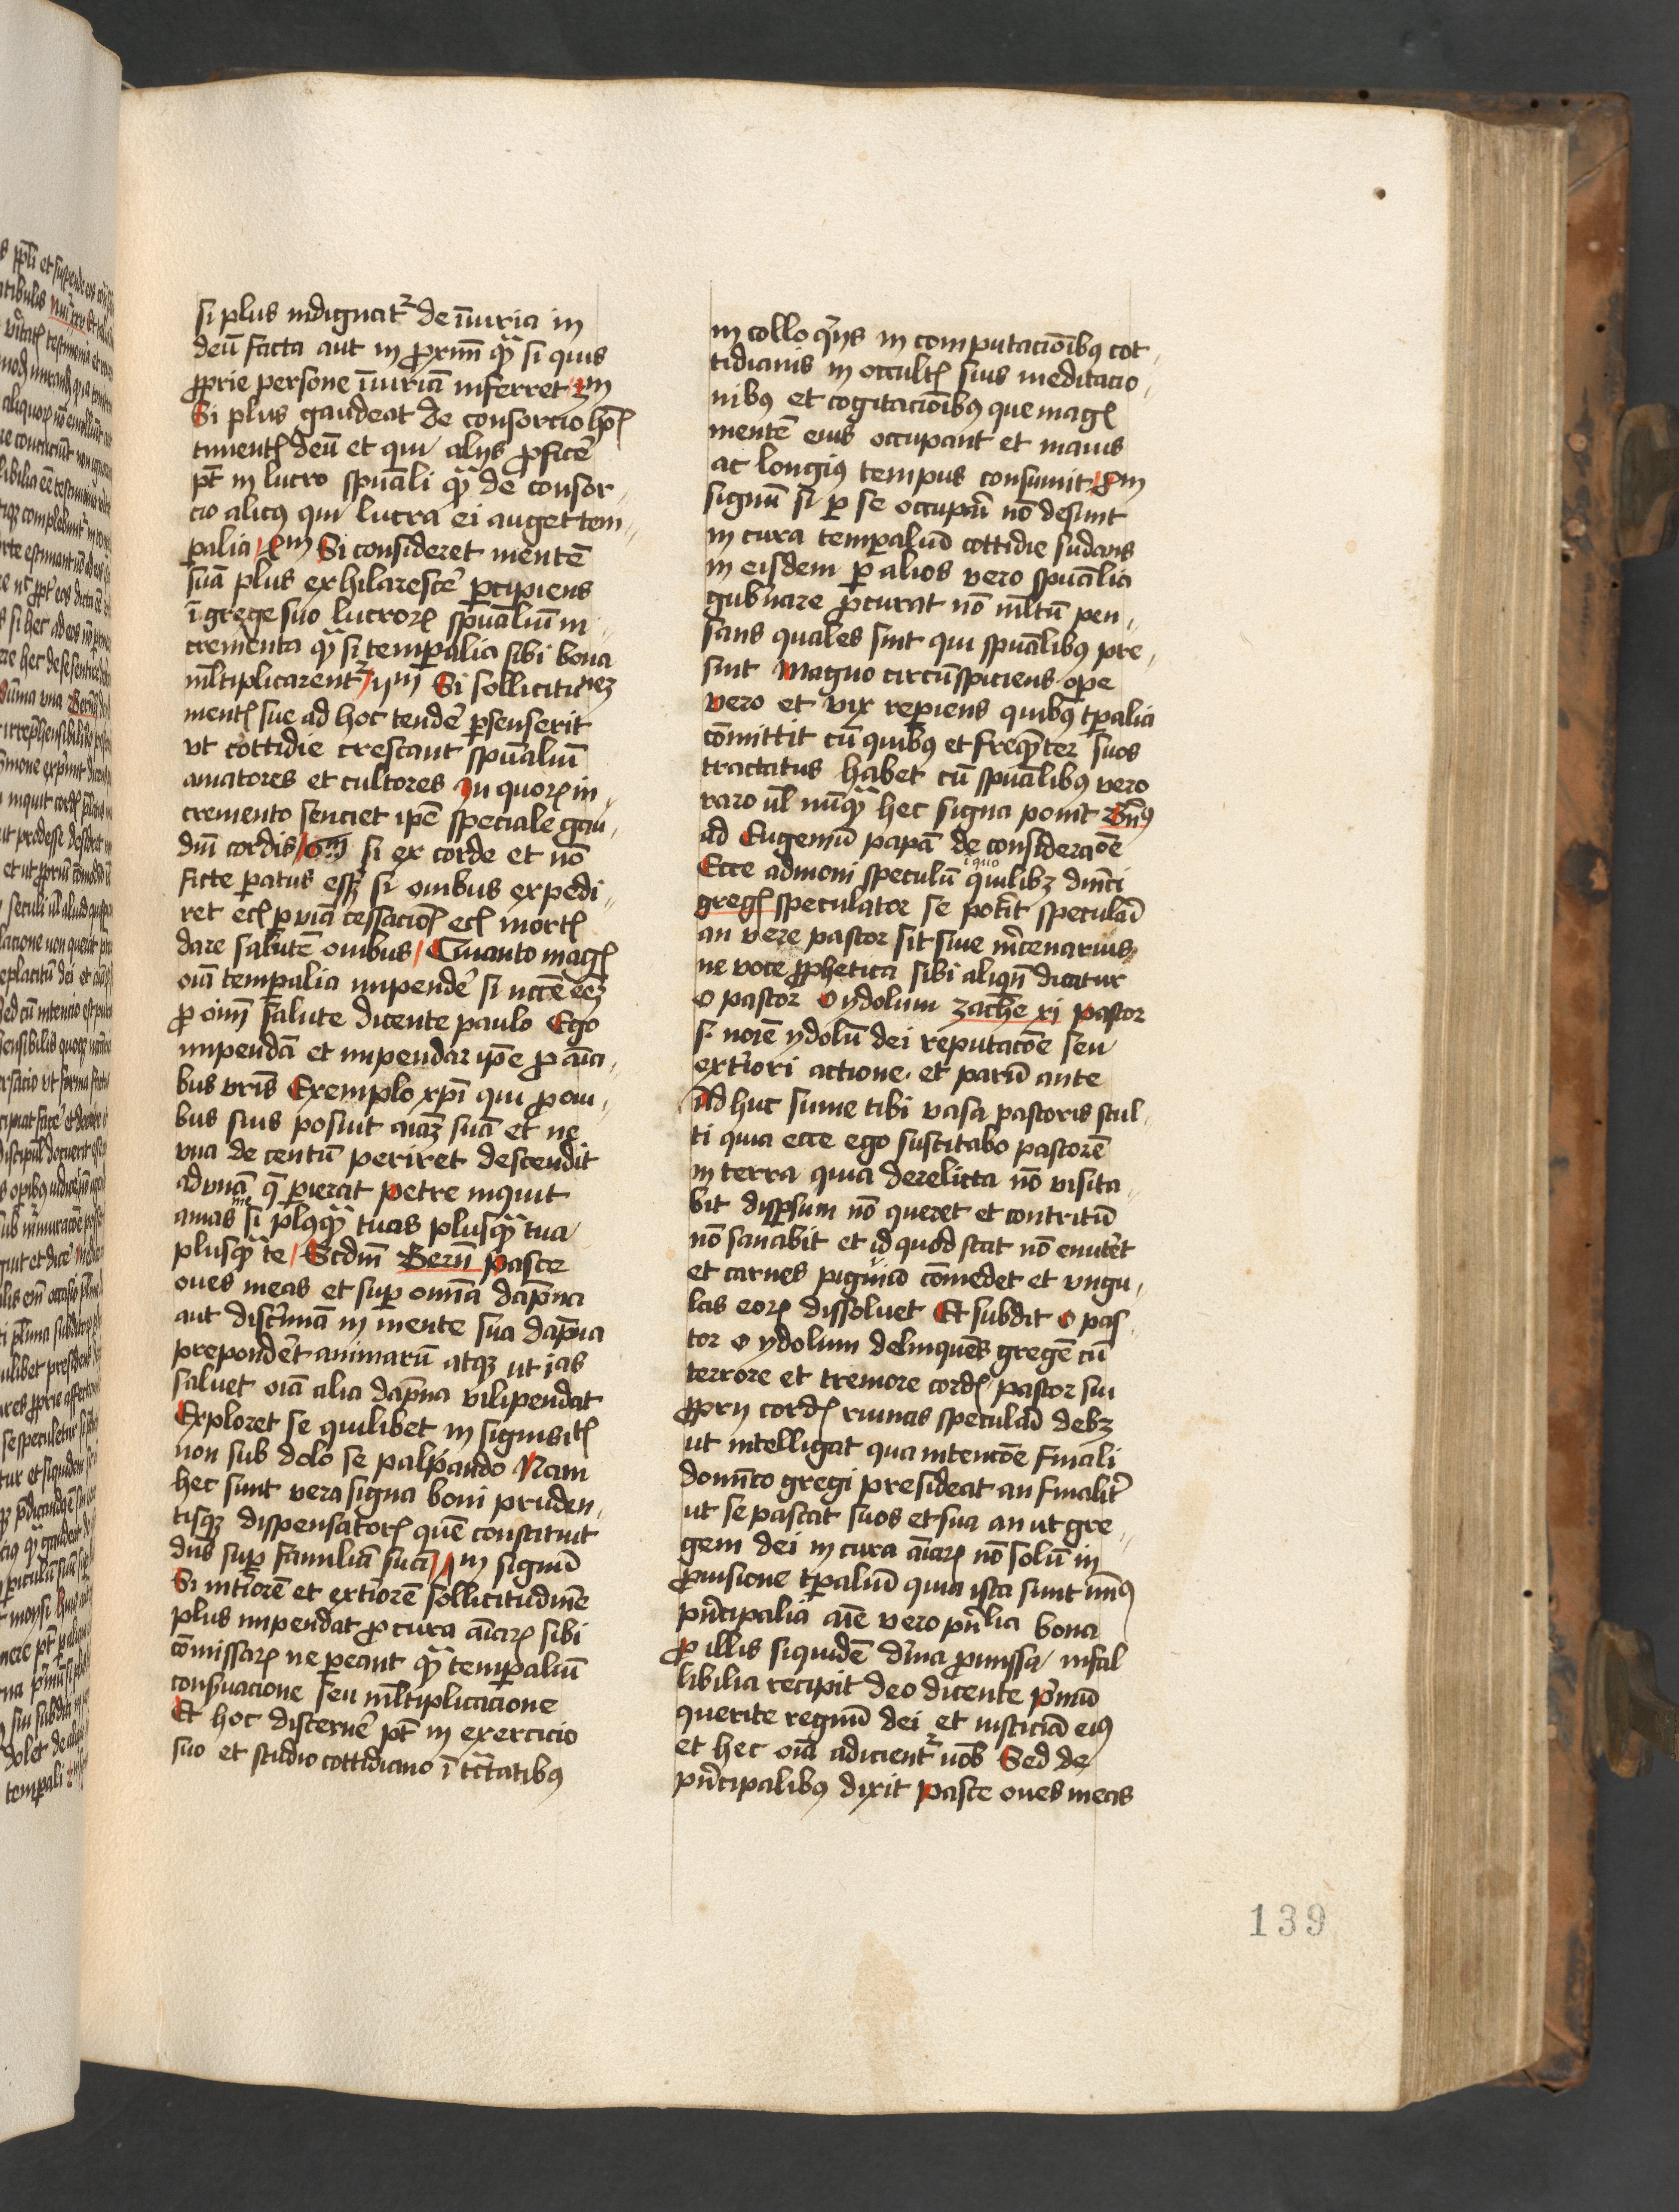 si plus indignatr̄ de īiuria in
deū facta aut in ꝓximū qꝫ̄ si quis
ꝓprie persone īiuriā inferret
Si plus gaudeat de consorcio hōꝫ
timentꝭ deū et qui alijs ꝓficē
pt̄ in lucro spūali qꝫ̄ de consor
cio alicꝰ qui lucra ei auget tem
palia / Si consideret mentē
suā plus exhilarescē ꝑcipiens
ī grege suo lucroꝝ spūaliū in
crementa qꝫ̄ si temꝑalia sibi bona
ml̄tiplicarentr̄ / Si sollicitu
mentꝭ sue ad hoc tendē ꝑsenserit
vt cottidie crescant spūaliū
amatores et cultores In quoꝝ in
cremento senciet ipē speciale gau
diū cordis / 6m si ex corde et nō
ficte ꝑatus essꝫ si ouibus expedi
ret ecꝭ ꝑ viā cessacioꝭ ecꝭ mortꝭ
dare salutē ouibus / Quanto magꝭ
oīa temꝑalia impendē si nccē eēꝫ
ꝓ oīm salute dicente paulo Ego
impendā et impendar ipē ꝓ aīa
bus vr̄is Exemplo xp̄i qui ꝓ oui
bus suis posuit aīaꝫ suā et ne
vna de centū periret descendit
ad vnā q̄ ꝑierat Petre inquit
amas me si plqꝫ̄ tuas plusqꝫ̄ tua
plusqꝫ̄ te / Scdm̄ Bern̄ pasce
oues meas et suꝑ omīa dāpna
aut discrīmīa in mente sua dāpna
preponderet animarū atqꝫ ut ias
saluet oīa alia dāpna vilipendat
Exploret se quilibet in signis
non sub dolo se palpando Nam
hec sunt vera signa boni pruden
tisqꝫ dispensatorꝭ quē constituit
dn̄s suꝑ familiā suā / signū
Si intiorē et extiorē sollicitudinē
plus impendat ꝓ cura aīaꝝ sibi
cōmissaꝝ ne ꝑeant qꝫ̄ temꝑaliū
conseruacione seu ml̄tiplicacione
Et hoc discernē pt̄ in exercicio
suo et studio cottidiano ī tc̄tatibꝰ
in colloqijs in computacioībꝰ cot
tidianis in occultꝭ suis meditacio
nibꝰ et cogitacioībꝰ que magꝭ
mentē eius occupant et maius
ac longiꝰ tempus consumit
signū si ꝑ se occupāt nō desunt
in cura temꝑaliū cottidie sudans
in eisdem ꝑ alios vero spūalia
gub̄nare ꝓcurat nō ml̄tū pen
sans quales sint qui spūalibus pre
sint Magno circūspiciens opē
vero et vix reꝑiens quibus tꝑalia
cōmittit cū quibꝰ et freqn̄ter suos
tractatus habet cū spūalibꝰ vero
raro ul̄ nūqꝫ̄ hec signa ponit Bn̄ꝰ
ad Eugeniū papā de consideracōe
Ecce admoni speculū i quo quilibꝫ dn̄ici
gregꝭ speculator se pot̄it speculāi
an vere pastor sit siue mr̄cenarius
ne voce ꝓphetica sibi aliqn̄ dicatur
O pastor O ydolum zache xi Pastor
s. noīe ydolū dei reputacōe seu
ext̄iori actione. et parū ante
Adhuc sume tibi vasa pastoris stul
ti quia ecce ego suscitabo pastorē
in terra quia derelicta nō visita
bit disꝑsum nō queret et contritū
nō sanabit et id quod stat nō enutriet
et carnes pinguiū cōmedet et vngu
las eoꝝ dissoluet Et subdit O pas
tor O ydolum delinquēs gregē cū
terrore et tremore cordꝭ pastor sui
ꝓprij cordꝭ rimas speculāi debꝫ
ut intelligat qua intencōe finali
dominico gregi presideat an finalit̄
ut se pascat suos et sua an ut gre
gem dei in cura aīaꝝ nō solū in
ꝓuisione tꝑaliū quia ista sunt minꝰ
pn̄cipalia aīe vero pn̄lia bona
ꝓ illis siquidē dīna ꝓmissa infal
libilia recipit deo dicente Pͥmū
querite regnū dei et iusticiā eiꝰ
et hec oīa adicientr̄ uob̄ Sed de
pn̄cipalibꝰ dixit Pasce oues meas
139